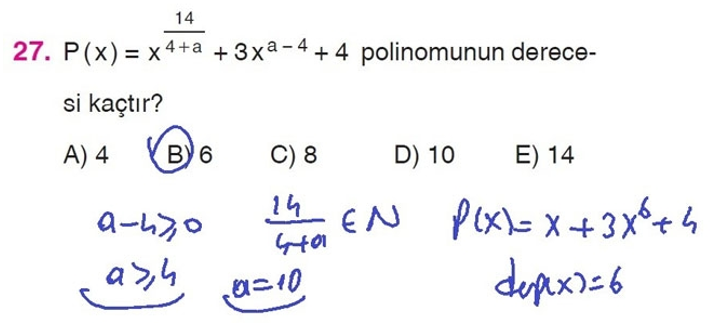 27. P(x) = x^(14/(4+a)) + 3x^(a-4) + 4 polinomunun derece-
si kaçtır?
A) 4 B) 6 C) 8 D) 10 E) 14
a-4≥0 14/(4+a) ∈ N P(x)= x+3x^6+4
a≥4 a=10 derp(x)=6